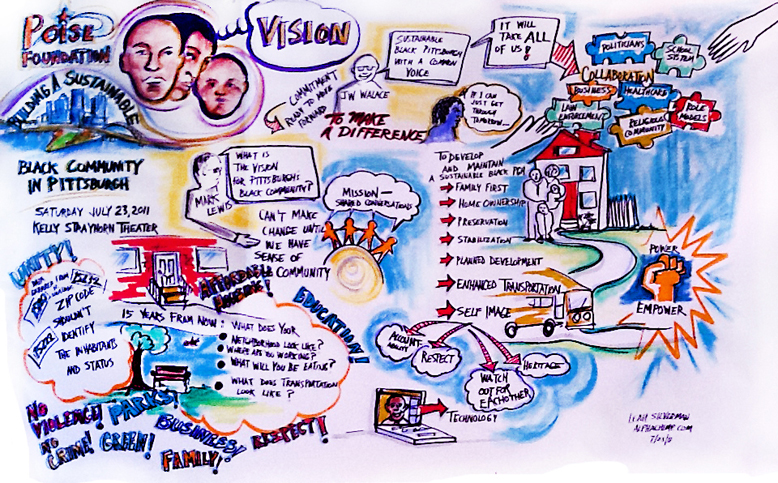 POISE
FOUNDATION
BUILDING A SUSTAINABLE
BLACK COMMUNITY
IN PITTSBURGH
SATURDAY JULY 23, 2011
KELLY STRAYHORN THEATER
VISION
COMMITMENT
READY TO MOVE
FORWARD
JW WALACE
SUSTAINABLE
BLACK PITTSBURGH
WITH A COMMON
VOICE
IT WILL
TAKE ALL
OF US!
TO MAKE
A DIFFERENCE
IF I CAN
JUST GET
THROUGH
TOMORROW...
POLITICIANS
SCHOOL
SYSTEM
COLLABORATION
BUSINESS
HEALTHCARE
LAW
ENFORCEMENT
ROLE
MODELS
RELIGIOUS
COMMUNITY
MARK
LEWIS
WHAT IS
THE VISION
FOR PITTSBURGH'S
BLACK COMMUNITY?
CAN'T MAKE
CHANGE UNTIL
WE HAVE
SENSE OF
COMMUNITY
MISSION—
SHARED CONVERSATIONS
TO DEVELOP
AND MAINTAIN
A SUSTAINABLE BLACK PGH
FAMILY FIRST
HOME OWNERSHIP
PRESERVATION
STABILIZATION
PLANNED DEVELOPMENT
ENHANCED TRANSPORTATION
SELF IMAGE
POWER
EMPOWER
ACCOUNT
ABILITY
RESPECT
WATCH
OUT FOR
EACHOTHER
HERITAGE
TECHNOLOGY
UNITY!
ZIP CODE
SHOULDN'T
IDENTIFY
THE INHABITANTS
AND STATUS
AFFORDABLE
EDUCATION!
15 YEARS FROM NOW: WHAT DOES YOUR
NEIGHBORHOOD LOOK LIKE?
WHERE ARE YOU WORKING?
WHAT WILL YOU BE EATING?
WHAT DOES TRANSPORTATION
LOOK LIKE?
NO
VIOLENCE!
NO
CRIME!
PARKS!
GREEN!
BUSINESS!
FAMILY!
RESPECT!
LEAH SILVERMAN
ALPHACHIMP.COM